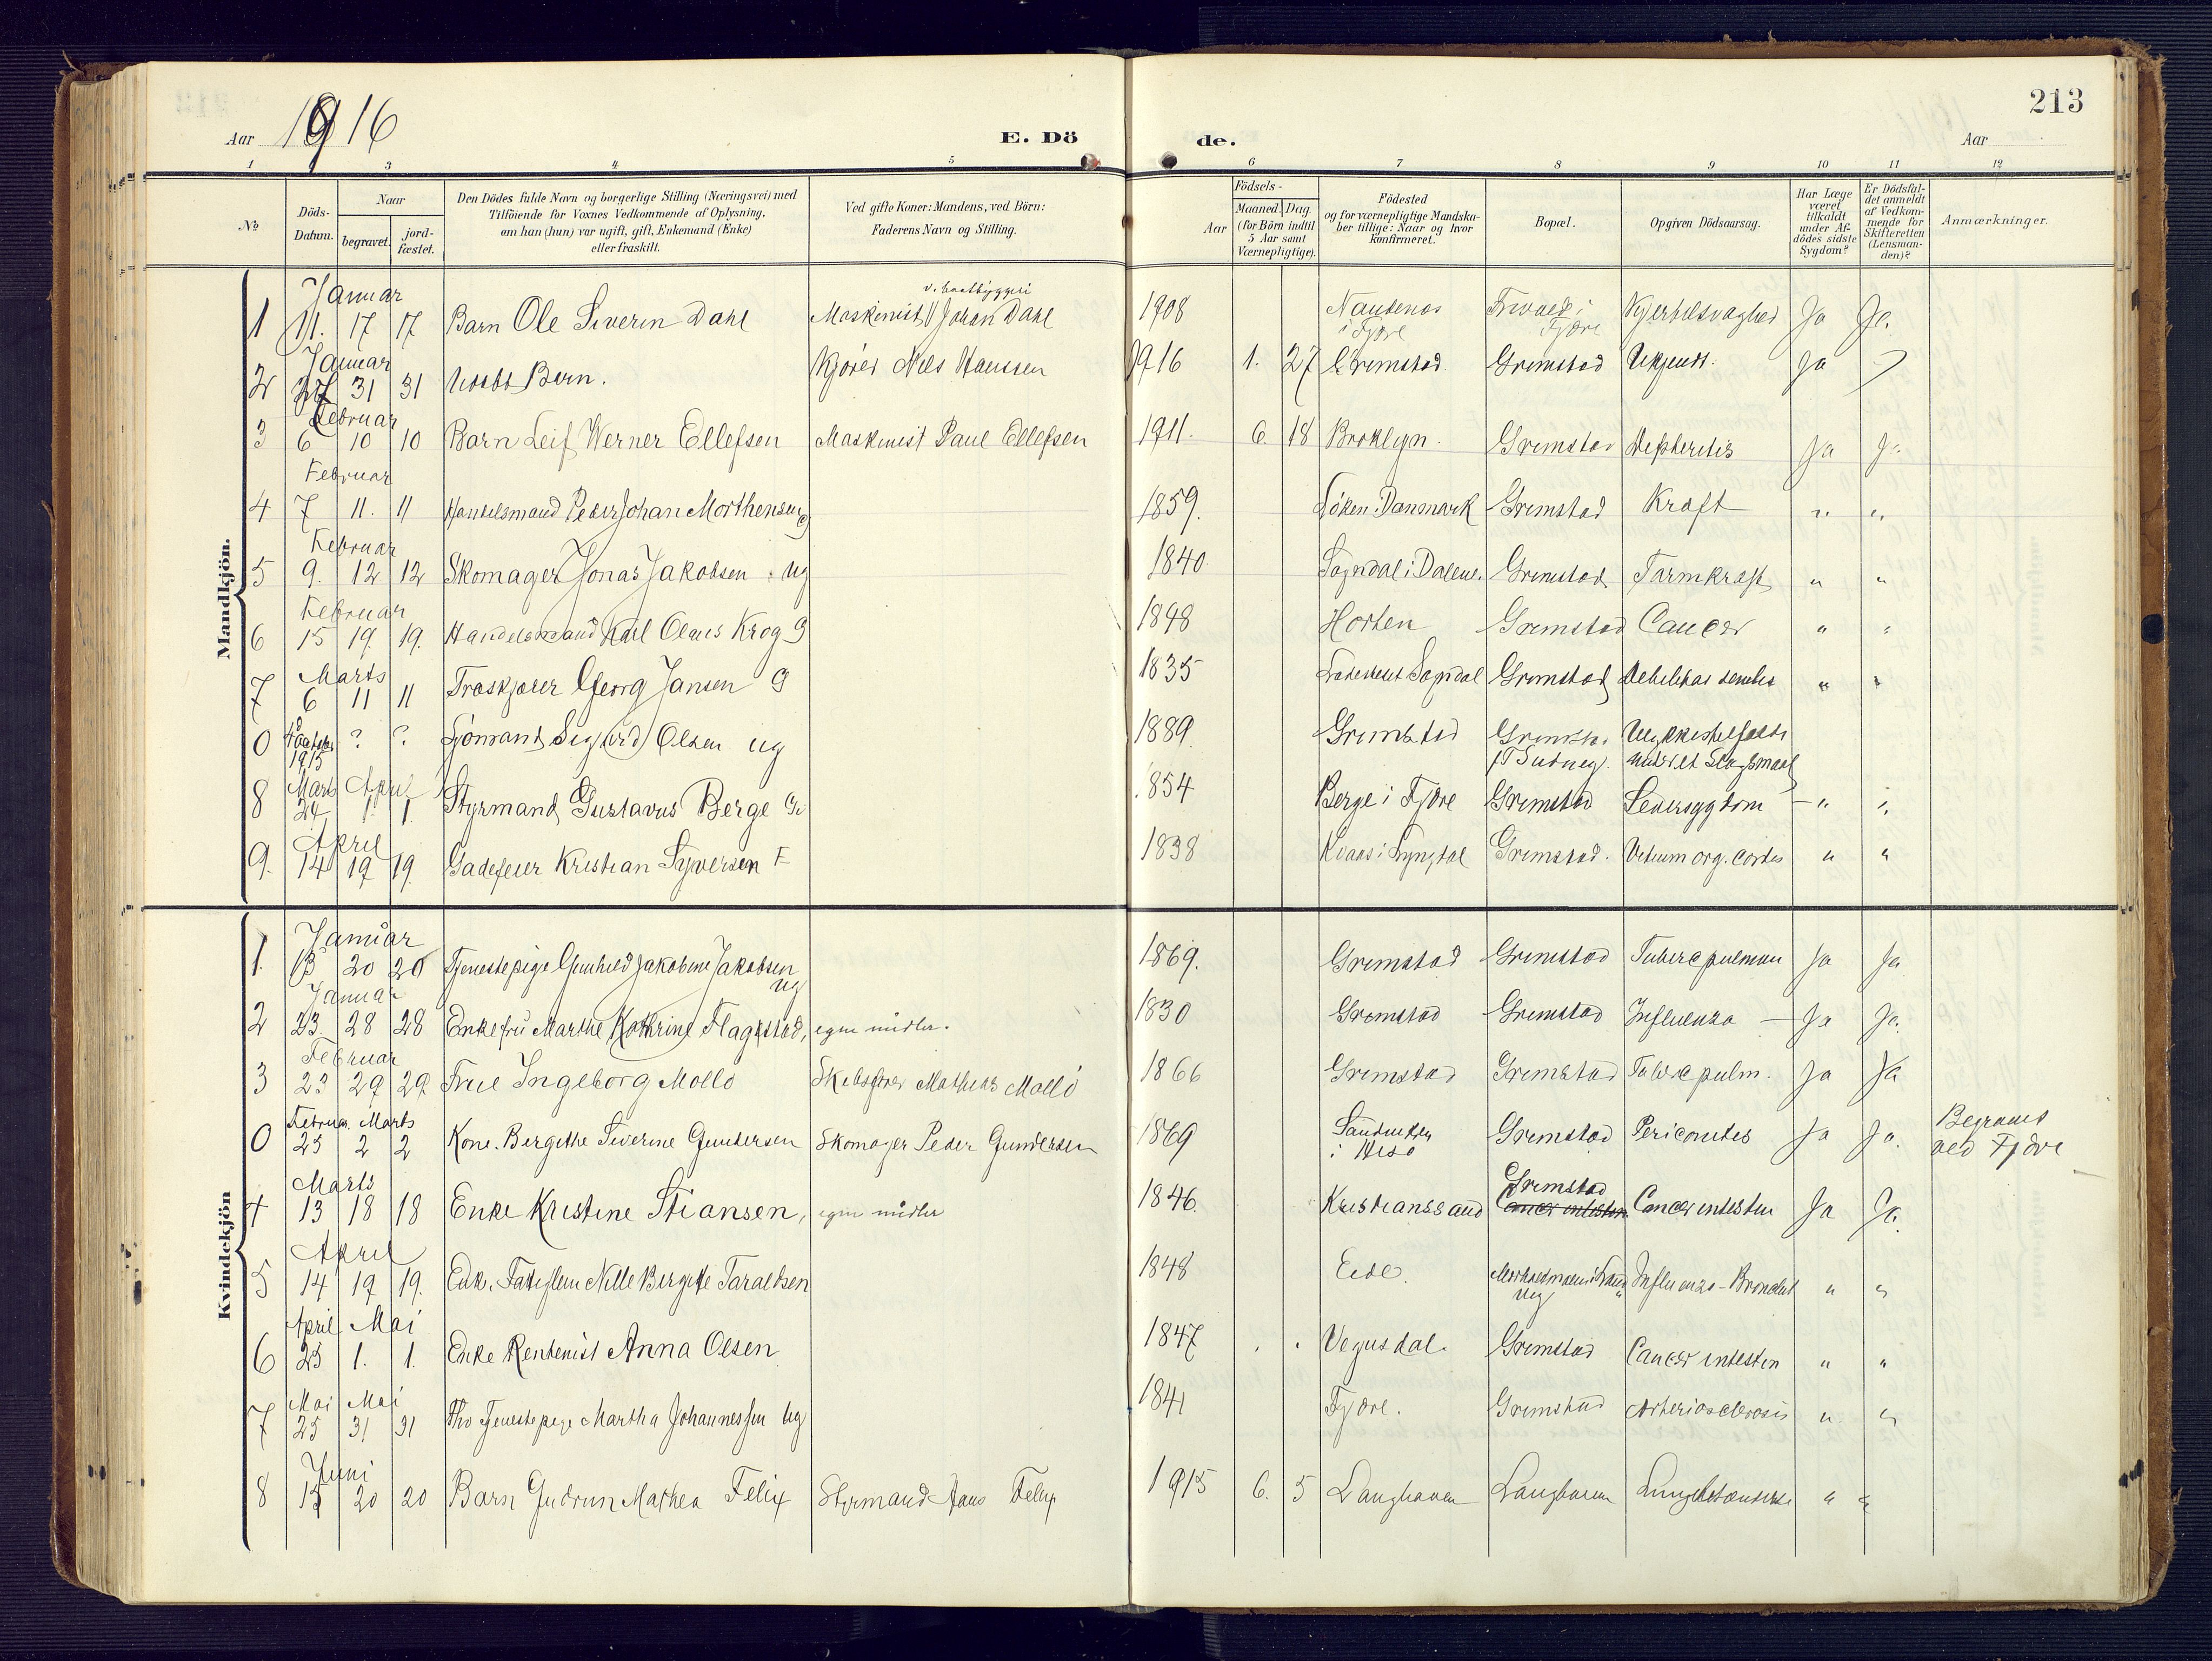 213
Aar 1916
E. Döde.
Aar
1 3 4 5 6 7 8 9 10 11 12
No
Döds-Datum.
Naar
begravet.
jord-fæstet.
Den Dödes fulde Navn og borgerlige Stilling (Næringsvei) med
Tilföiende for Voxnes Vedkommende af Oplysning,
om han (hun) var ugift, gift, Enkemand (Enke)
eller fraskilt.
Ved gifte Koner: Mandens, ved Börn:
Faderens Navn og Stilling.
Aar
Födsels-
Maaned. Dag.
(for Börn indtil
5 Aar samt
Værnepligtige).
Födested
og for værnepligtige Mandska-
ber tillige: Naar og hvor
konfirmeret.
Bopæl.
Opgiven Dödsaarsag.
Har Læge
været
tilkaldt
under Af-
dödes sidste
Sygdom?
Er Dödsfal-
det anmeldt
af Vedkom-
mende for
Skifteretten
(Lensman-
den)?
Anmærkninger.
Mandkjön.
Januar
v. baatbyggeri
1 11. 17 17 Barn Ole Siverin Dahl Maskinist Johan Dahl 1908 i Fjære Fjære Ja Ja.
Januar
2 27 31 31 Udøbt Barn. Kjører Nils Hanssen 1916 1. 27 Grimstad Grimstad Ukjendt. Ja
Februar
3 6 10 10 Barn Leif Werner Ellefsen Maskinist Paul Ellefsen 1911. 6. 18 Broklyn. Grimstad Defheritis Ja Ja
Februar
4 7 11. 11 Handelsmand Peder Johan Morthensen G 1859. Danmark Grimstad Kræft " "
Februar
5 9. 12 12 Skomager Jonas Jakobsen ug 1840 Sogndal i Dalene. Grimstad Tarmkræft " "
Februar
6 15 19. 19. Handelsmand Karl Olaus Krog G 1848 Horten Grimstad Cancer " "
Marts
7 6 11 11 Træskjærer Georg Jansen G 1835 Sogndal Grimstad Debilitas senilis " "
0 1915 ? ? Sjömand Sigurd Olsen ug 1889 Grimstad Grimstad Ulykkestilfælde
f T Sidney. under et Slagsmaal
Marts April
8 24 1. 1. Styrmand Gustavus Berge G 1854 Berge i Fjære Grimstad Leversygdom - " "
April
9. 14 19 19. Gadefeier Kristian Syversen F 1838 Kvaas i Lyngdal Grimstad. Vitium org. cordis " "
Kvindekjön
Januar
1. 13 20 20 Tjenestepige Gunhild Jakobine Jakobsen ug 1869. Grimstad Grimstad Tuberc pulmon Ja Ja
Januar
2 23. 28 28 Enkefru Marthe Kathrine Flagestad, egne midler. 1830 Grimstad Grimstad Influenza - Ja Ja.
Februar
3 23 29 29 Frue Ingeborg Mollö Skibsfører Mathias Mollö 1866 Grimstad Grimstad Tuberc pulm. Ja Ja
Februar Marts
0 25 2 2 Kone. Bergithe Siverine Gundersen Skomager Peder Gundersen 1869 i Hisö Grimstad Ja Ja. Begravet
ved Fjære
Marts
4 13 18 18 Enke Kristine Stiansen, egne midler 1846. Kristianssand Grimstad Cancer intestin Cancer intestin Ja Ja.
April
5 14 19 19. Enke. Fattiglem Nille Bergitte Taraldsen 1848 Eide. Influenza - Bronchit " "
April Mai
6 25 1. 1. Enke Rentenist Anna Olsen 1847 Vegusdal. Grimstad Cancer intestin " "
Mai Mai
7 25 31 31 Tjenestepige Martha Johannessen ug 1841 Fjære. Grimstad Arteriosclerosis " "
Juni
8 15 20 20 Barn Gudrun Mathea Felix Styrmand Hans Felix 1915 6. 5 Langhaven Langhaven " "